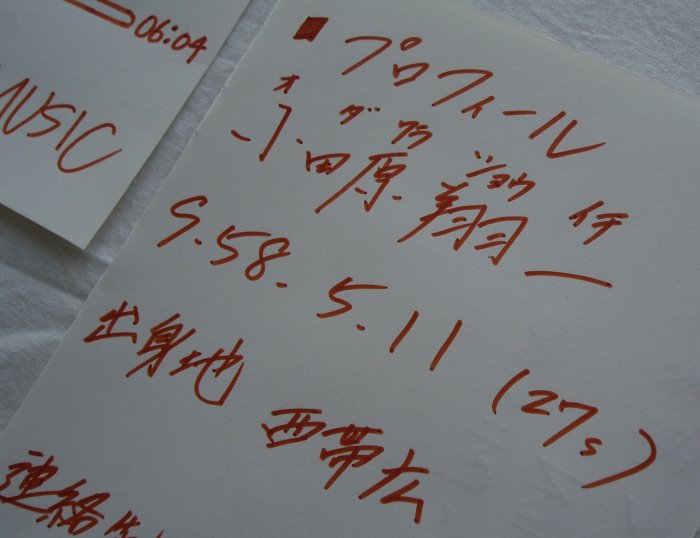 06:04
MUSIC
■ プロフィール
オダワラ ショウイチ
小田原 翔一
S.58.5.11 (27s)
出身地 西帯広
連絡先